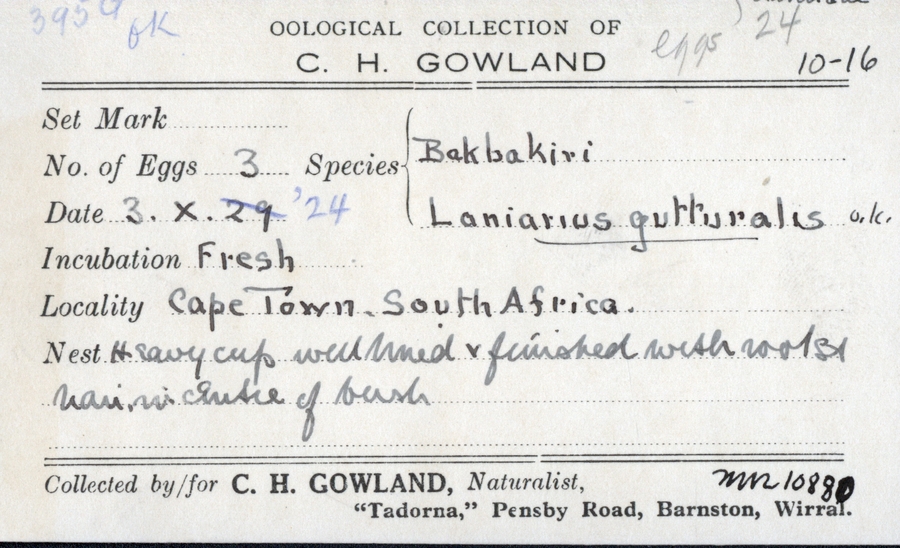 395 ok
OOLOGICAL COLLECTION OF
eggs 24
C. H. GOWLAND 10-16
Set Mark
No. of Eggs 3 Species Bakbakiri
Date 3. X. 29 '24 Laniarius gutturalis o.k.
Incubation Fresh
Locality Cape Town. South Africa.
Nest Heavy cup well lined & finished with roots &
hair, in centre of bush
Collected by/for C. H. GOWLAND, Naturalist,
"Tadorna," Pensby Road, Barnston, Wirral.